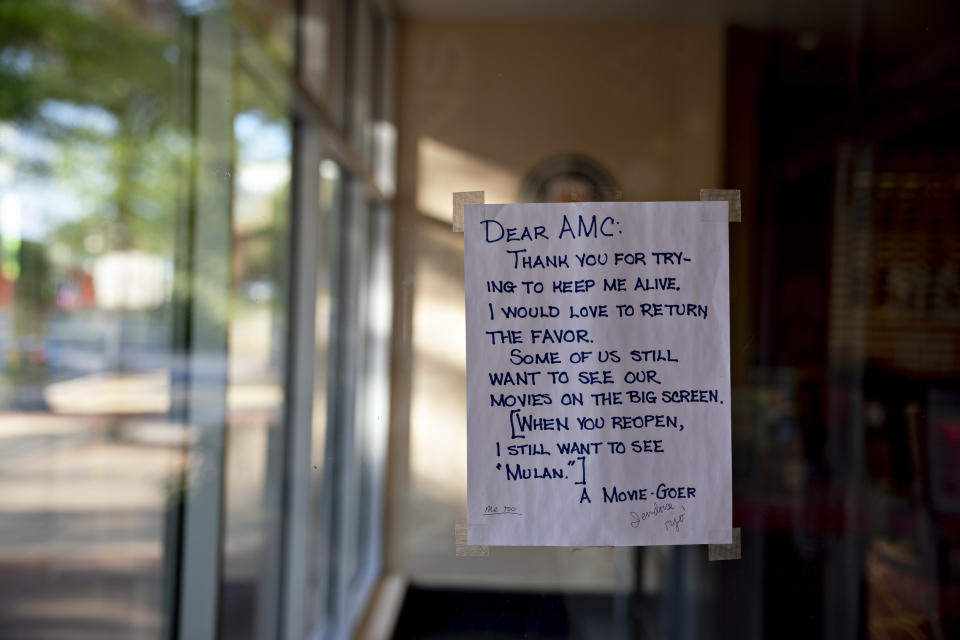 DEAR AMC:
THANK YOU FOR TRY-
ING TO KEEP ME ALIVE.
I WOULD LOVE TO RETURN
THE FAVOR.
SOME OF US STILL
WANT TO SEE OUR
MOVIES ON THE BIG SCREEN.
[WHEN YOU REOPEN,
I STILL WANT TO SEE
"MULAN."]
A MOVIE-GOER
me too